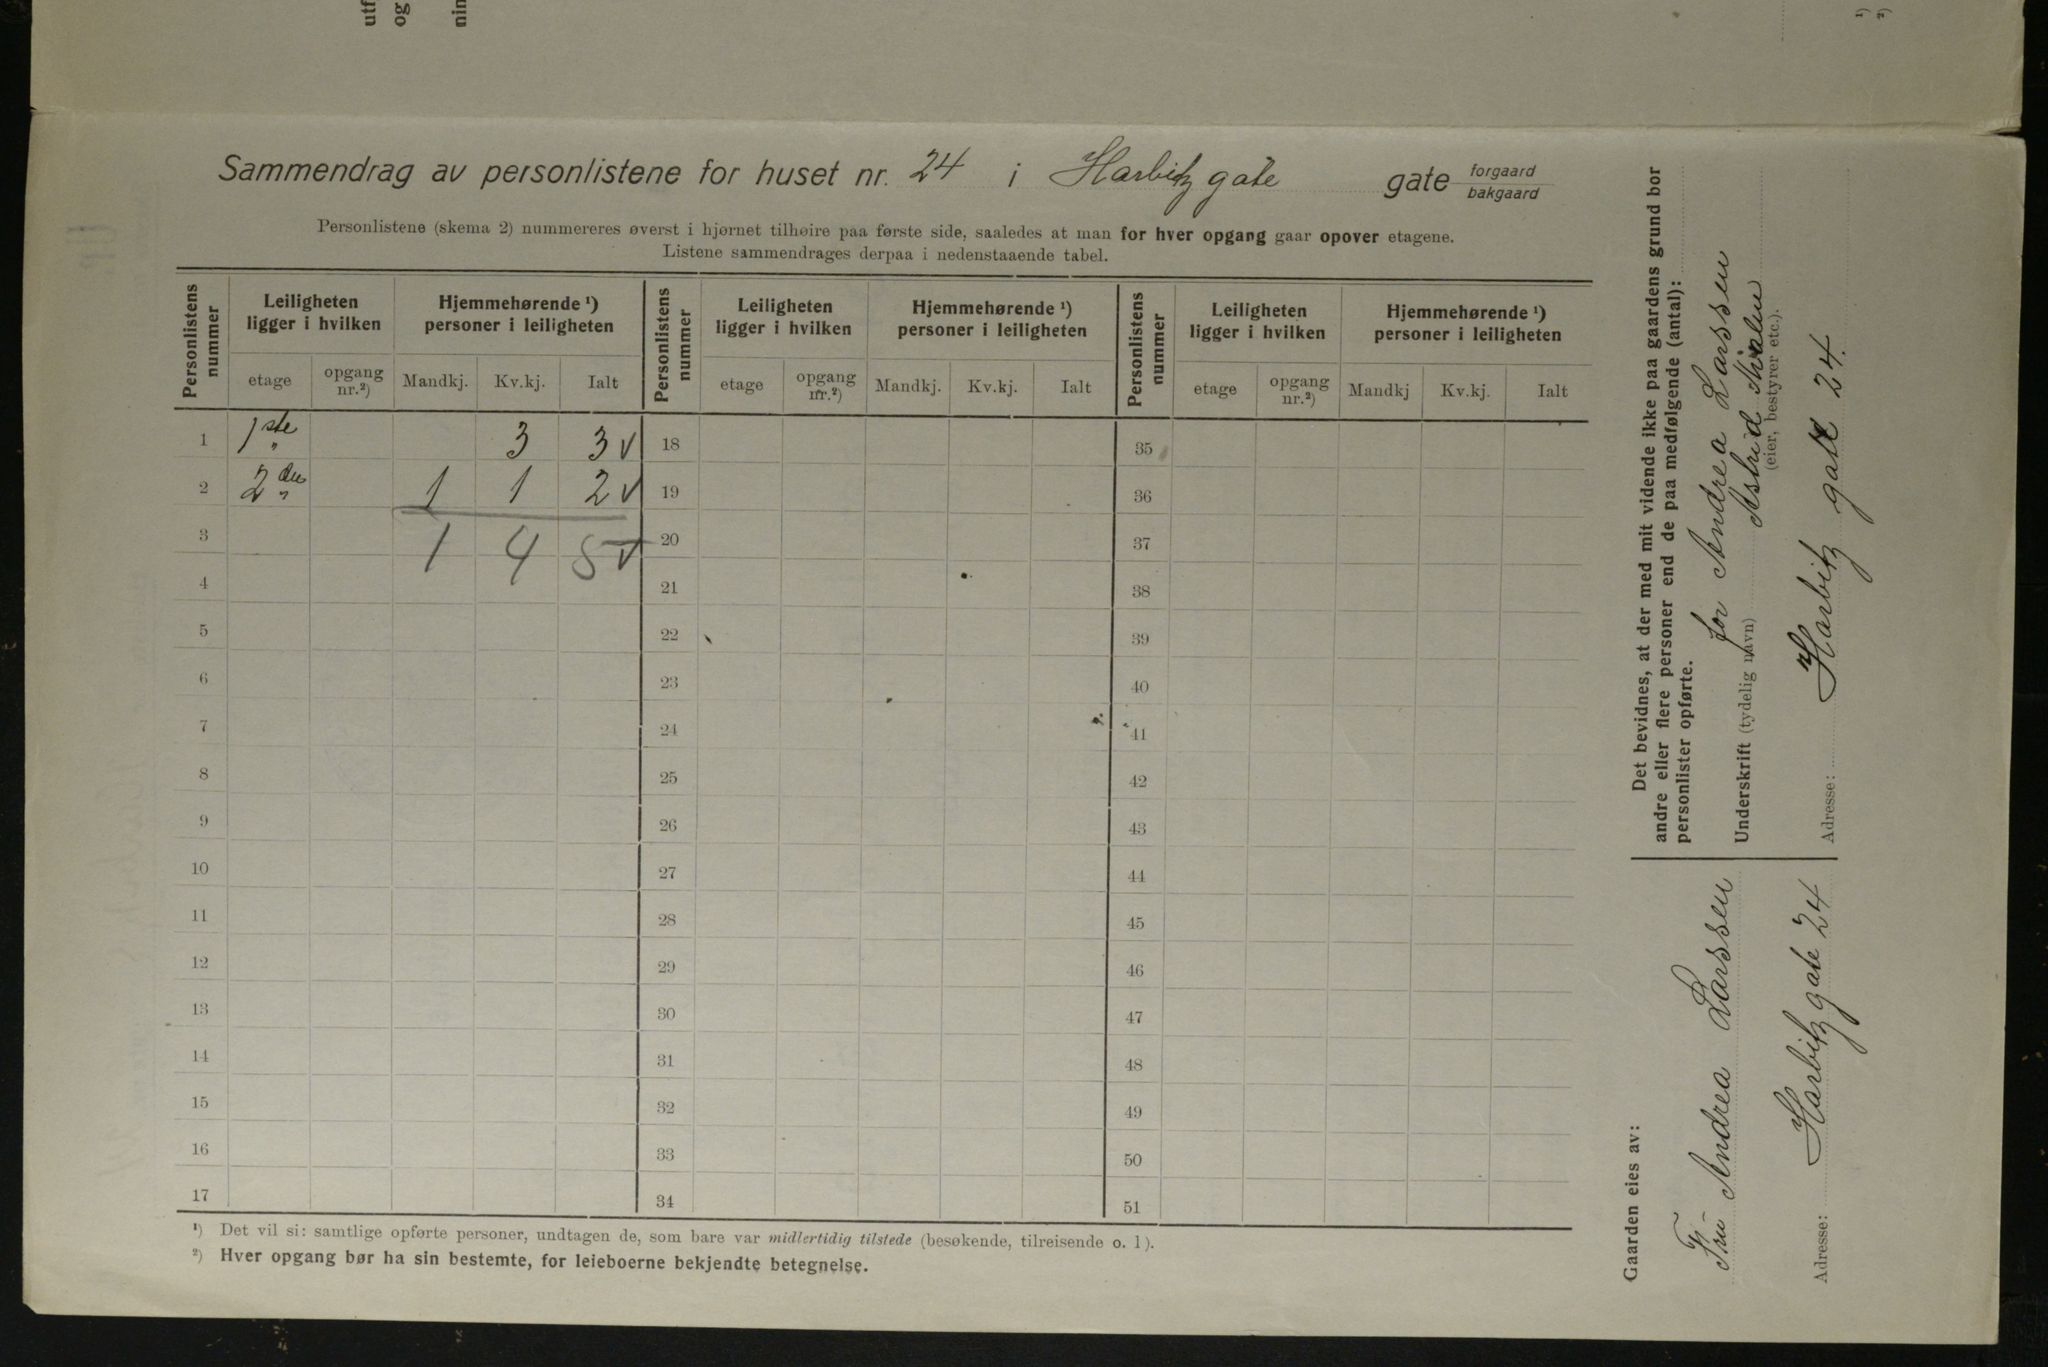 utf
og
nin
¹)
²)
Sammendrag av personlistene for huset nr. 24 i Harbitz gate gate forgaard
bakgaard
Personlistene (skema 2) nummereres øverst i hjørnet tilhøire paa første side, saaledes at man for hver opgang gaar opover etagene.
Listene sammendrages derpaa i nedenstaaende tabel.
Personlistens nummer | Leiligheten ligger i hvilken | Hjemmehørende ¹) personer i leiligheten | Personlistens nummer | Leiligheten ligger i hvilken | Hjemmehørende ¹) personer i leiligheten | Personlistens nummer | Leiligheten ligger i hvilken | Hjemmehørende ¹) personer i leiligheten
etage | opgang nr.²) | Mandkj. | Kv.kj. | Ialt | etage | opgang nr.²) | Mandkj. | Kv.kj. | Ialt | etage | opgang nr.²) | Mandkj | Kv.kj. | Ialt
1 1ste " 3 3 √ 18 35
2 2den " 1 1 2 √ 19 36
3 1 4 5 √ 20 37
4 21 38
5 22 39
6 23 40
7 24 41
8 25 42
9 26 43
10 27 44
11 28 45
12 29 46
13 30 47
14 31 48
15 32 49
16 33 50
17 34 51
¹) Det vil si: samtlige opførte personer, undtagen de, som bare var midlertidig tilstede (besøkende, tilreisende o. l).
²) Hver opgang bør ha sin bestemte, for leieboerne bekjendte betegnelse.
Det bevidnes, at der med mit vidende ikke paa gaardens grund bor
andre eller flere personer end de paa medfølgende (antal):
personlister opførte.
for Andrea Larssen
Underskrift (tydelig navn) Astrid
(eier, bestyrer etc.).
Adresse: Harbitz gate 24.
Gaarden eies av:
Fru Andrea Larssen
Adresse: Harbitz gate 24